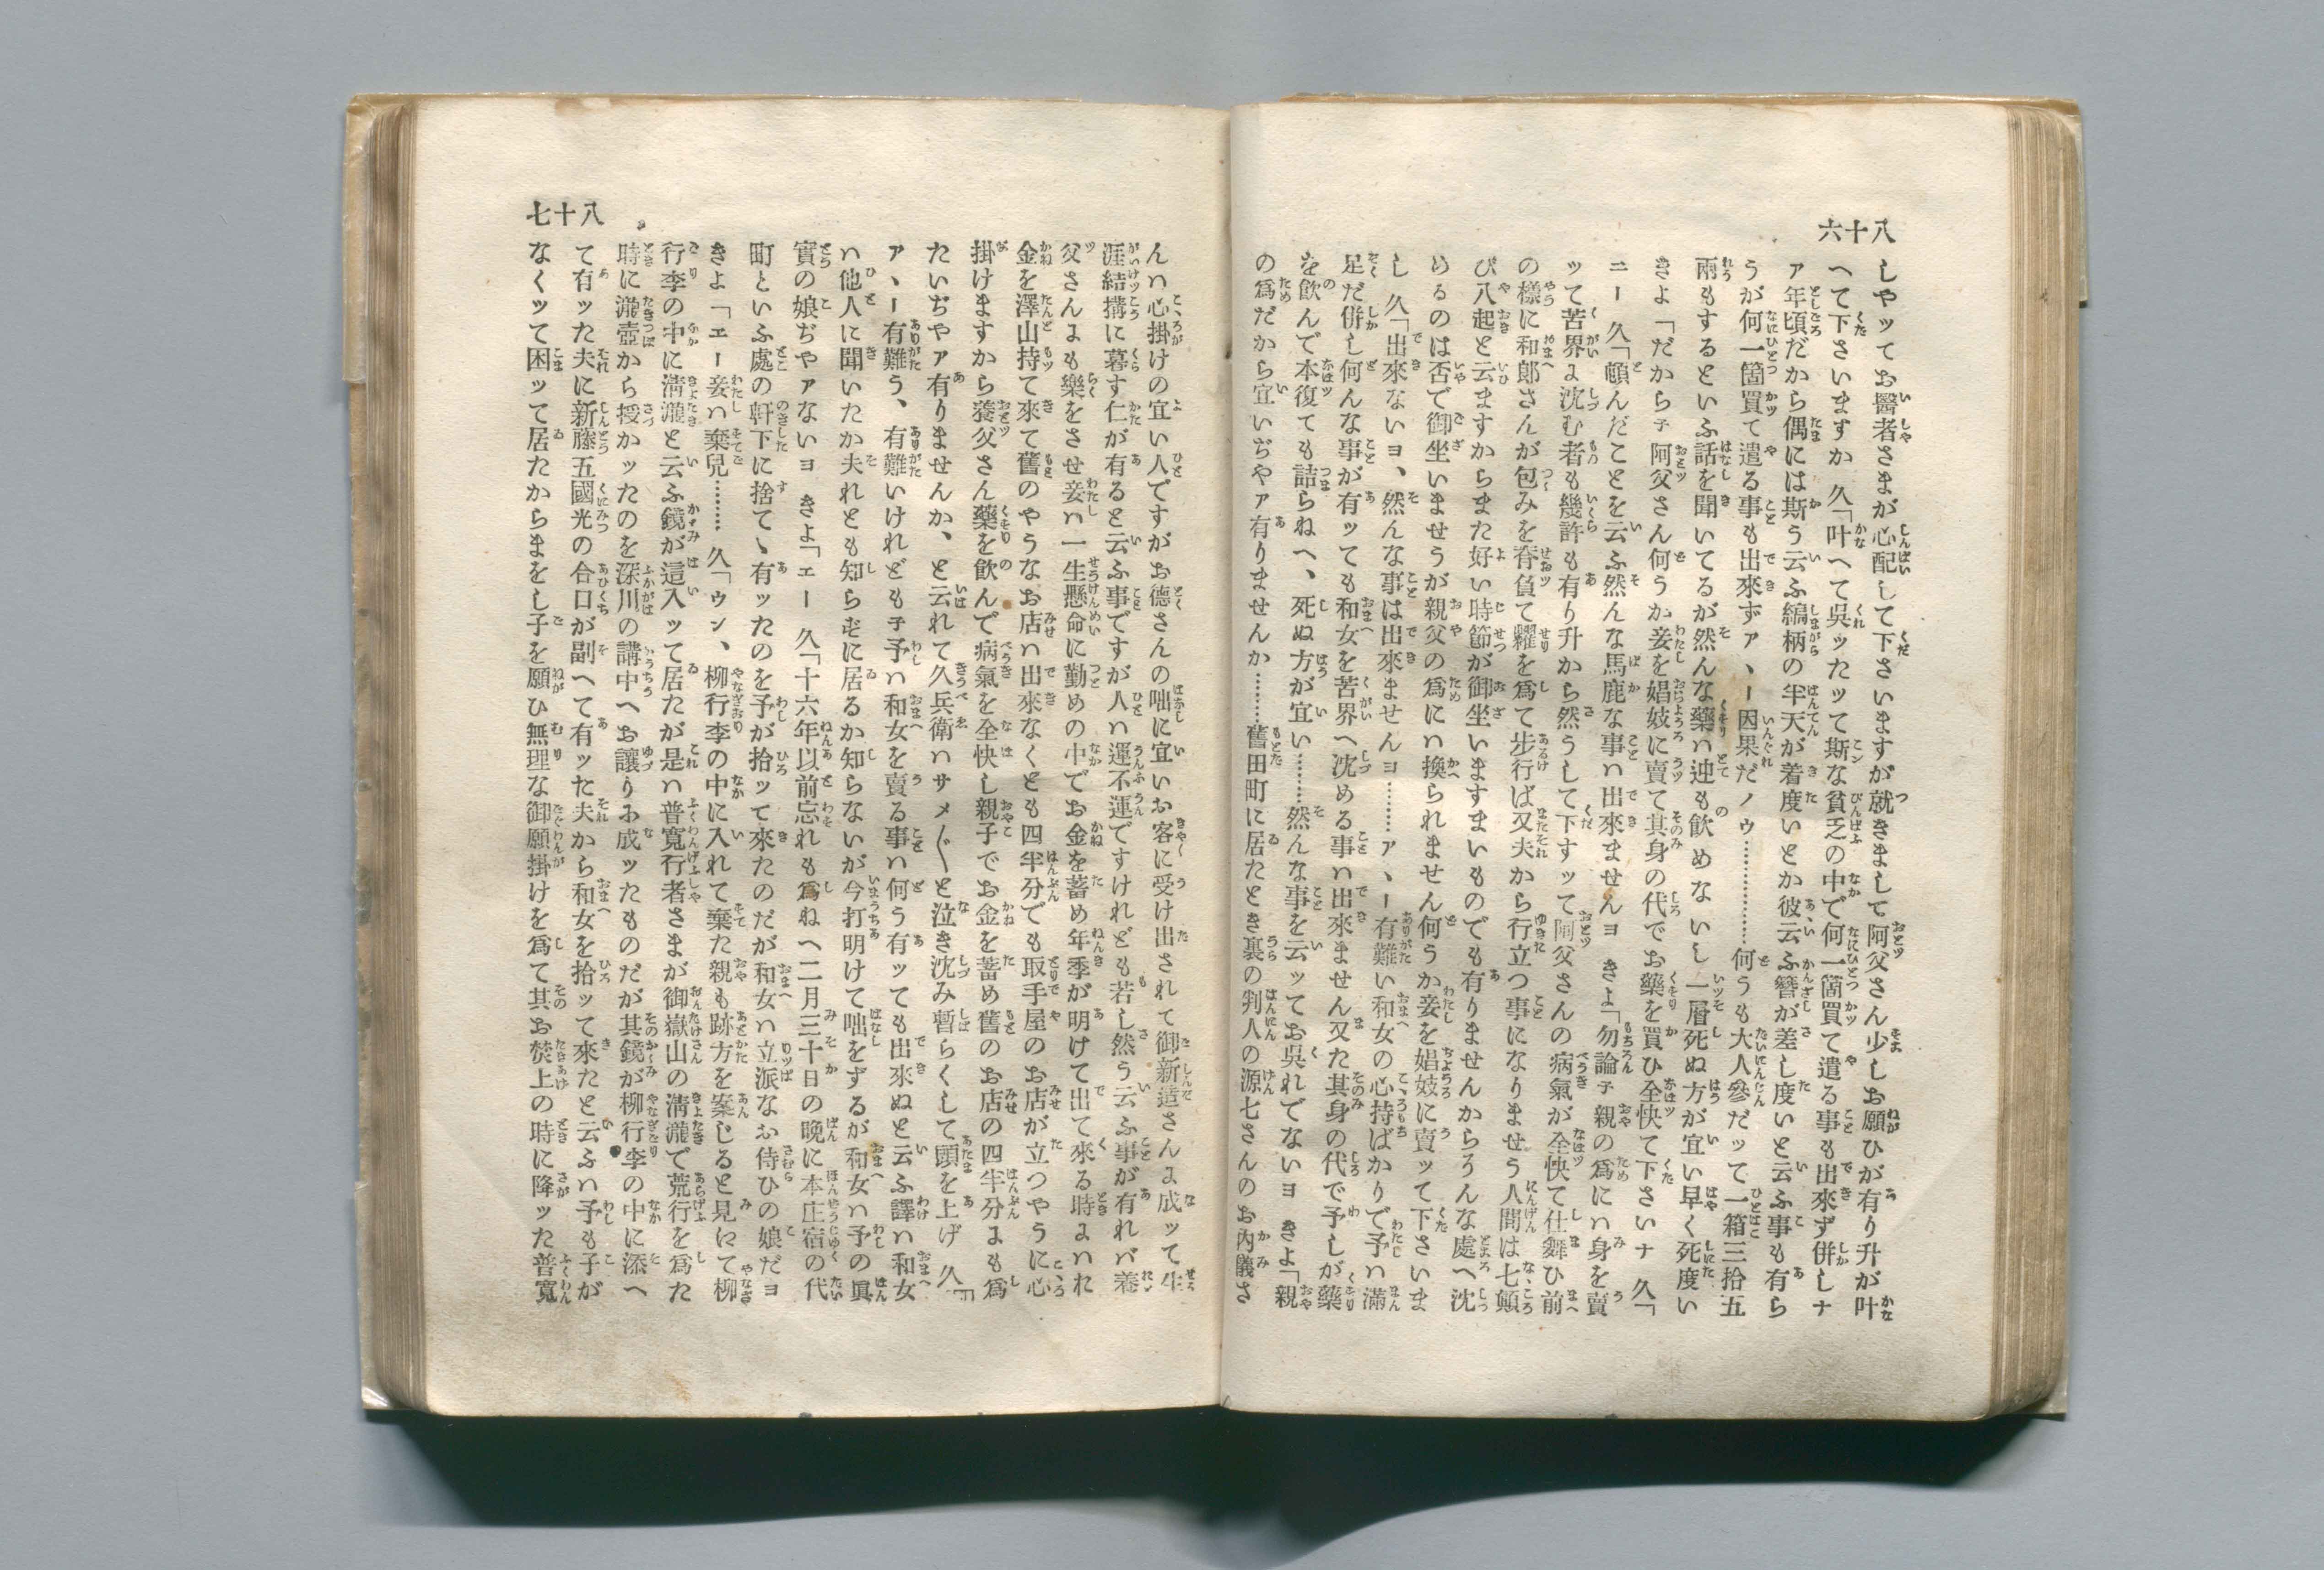 六十八
しやッてお醫者さまが心配して下さいますが就きまして阿父さん少しお願ひが有り升が叶
へて下さいますか 久「叶へて呉ッたッて斯な貧乏の中で何一箇買て遣る事も出來ず併しナ
ァ年頃だから偶には斯う云ふ縞柄の半天が着度いとか彼云ふ簪が差し度いと云ふ事も有ら
うが何一箇買て遣る事も出來ずアヽー因果だノウ……………何うも大人參だッて一箱三拾五
兩もするといふ話を聞いてるが然んな藥ハ迚も飮めないし一層死ぬ方が宜い早く死度い
きよ「だから子 阿父さん何うか妾を娼妓に賣て其身の代でお藥を買ひ全快て下さいナ 久「
ニー 久「頓んだことを云ふ然んな馬鹿な事ハ出來ませんヨ きよ「勿論子 親の爲にハ身を賣
ッて苦界に沈む者も幾許も有り升から然うして下すッて阿父さんの病氣が全快て仕舞ひ前
の樣に和郎さんが包みを脊負て糶を爲て歩行ば又夫から行立つ事になりませう人間は七顛
び八起と云ますからまた好い時節が御坐いますまいものでも有りませんからろんな處へ沈
めるのは否で御坐いませうが親父の爲にハ換られません何うか妾を娼妓に賣ッて下さいま
し 久「出來ないヨ、然んな事は出來ませんヨ………アヽー有難い和女の心持ばかりで予ハ滿
足だ併し何んな事が有ッても和女を苦界へ沈める事ハ出來ません又た其身の代で予しが藥
を飮んで本復ても詰らねへ、死ぬ方が宜い………然んな事を云ッてお呉れでないヨ きよ「親
の爲だから宜いぢやァ有りませんか………舊田町に居たとき裏の判人の源七さんのお内儀さ
七十八
んハ心掛けの宜い人ですがお德さんの咄に宜いお客に受け出されて御新造さんに成ッて生
涯結搆に暮す仁が有ると云ふ事ですが人ハ運不運ですけれども若し然う云ふ事が有れバ養
父さんにも樂をさせ妾ハ一生懸命に勤めの中でお金を蓄め年季が明けて出て來る時にハれ
金を澤山持て來て舊のやうなお店ハ出來なくとも四半分でも取手屋のお店が立つやうに心
掛けますから養父さん藥を飮んで病氣を全快し親子でお金を蓄め舊のお店の四半分にも爲
たいぢやァ有りませんか、と云れて久兵衛ハサメ〴〵と泣き沈み暫らくして頭を上げ 久「
アヽー有難う、有難いけれども子予ハ和女を賣る事ハ何う有ッても出來ぬと云ふ譯ハ和女
ハ他人に聞いたか夫れとも知らずに居るか知らないが今打明けて咄をずるが和女ハ予の眞
實の娘ぢやァないヨ きよ「エー 久「十六年以前忘れも爲ねへ二月三十日の晩に本庄宿の代
町といふ處の軒下に捨てヽ有ッたのを予が拾ッて來たのだが和女ハ立派なお侍ひの娘だヨ
きよ「エー妾ハ棄兒……… 久「ウン、柳行李の中に入れて棄た親も跡方を案じると見にて柳
行李の中に淸瀧と云ふ鏡が這入ッて居たが是ハ普寬行者さまが御嶽山の淸瀧で荒行を爲た
時に瀧壺から授かッたのを深川の講中へお讓りに成ッたものだが其鏡が柳行李の中に添へ
て有ッた夫に新藤五國光の合口が副へて有ッた夫から和女を拾ッて來たと云ふハ予も子が
なくッて困ッて居たからまをし子を願ひ無理な御願掛けを爲て其お焚上の時に降ッた普寬